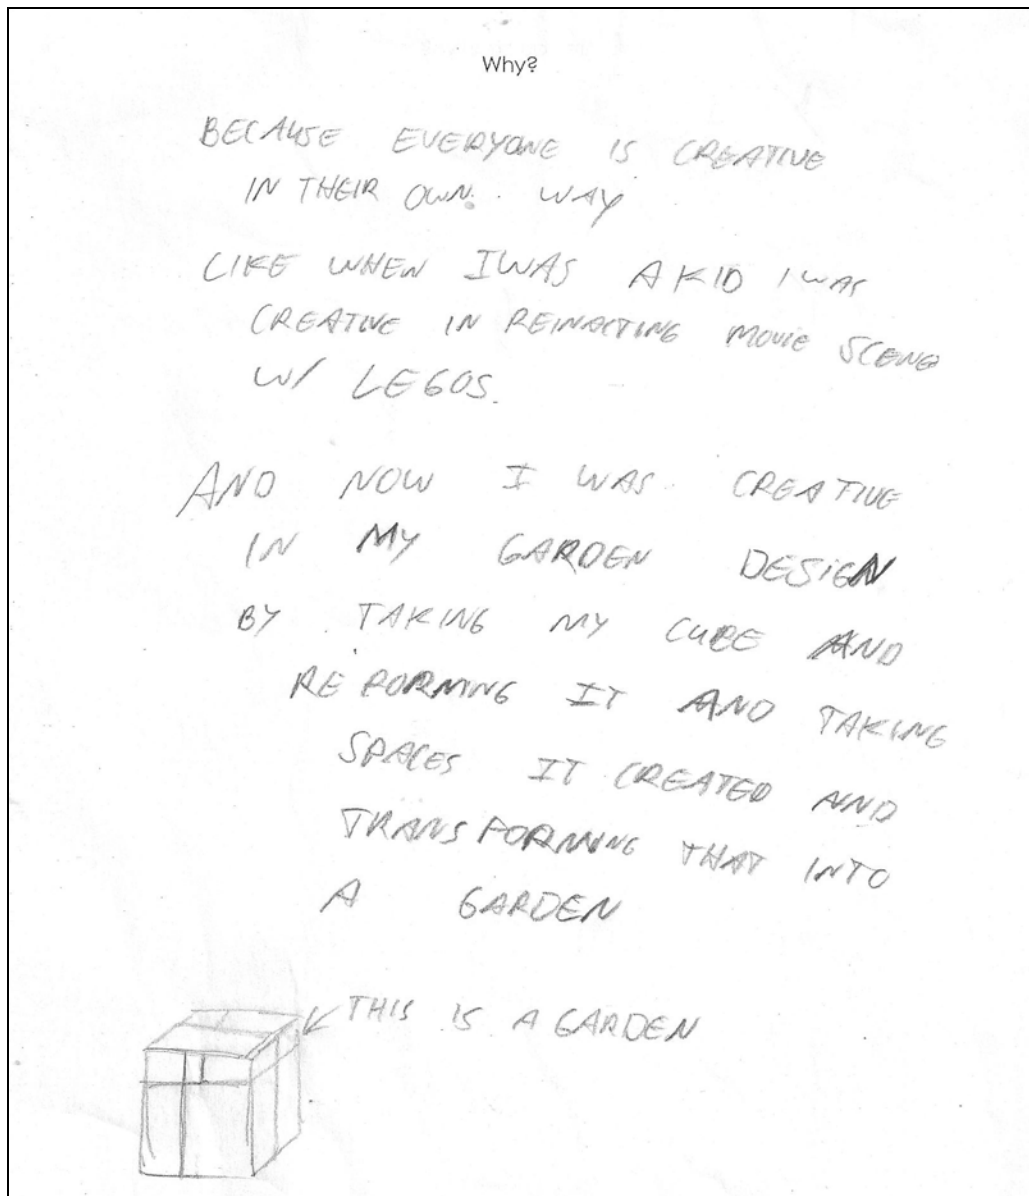 Why?
BECAUSE EVERYONE IS CREATIVE
IN THEIR OWN. WAY
LIKE WHEN I WAS A KID I WAS
CREATIVE IN REINACTING MOVIE SCENES
W/ LEGOS.
AND NOW I WAS CREATIVE
IN MY GARDEN DESIGN
BY TAKING MY CUBE AND
REFORMING IT AND TAKING
SPACES IT CREATED AND
TRANSFORMING THAT INTO
A GARDEN
THIS IS A GARDEN